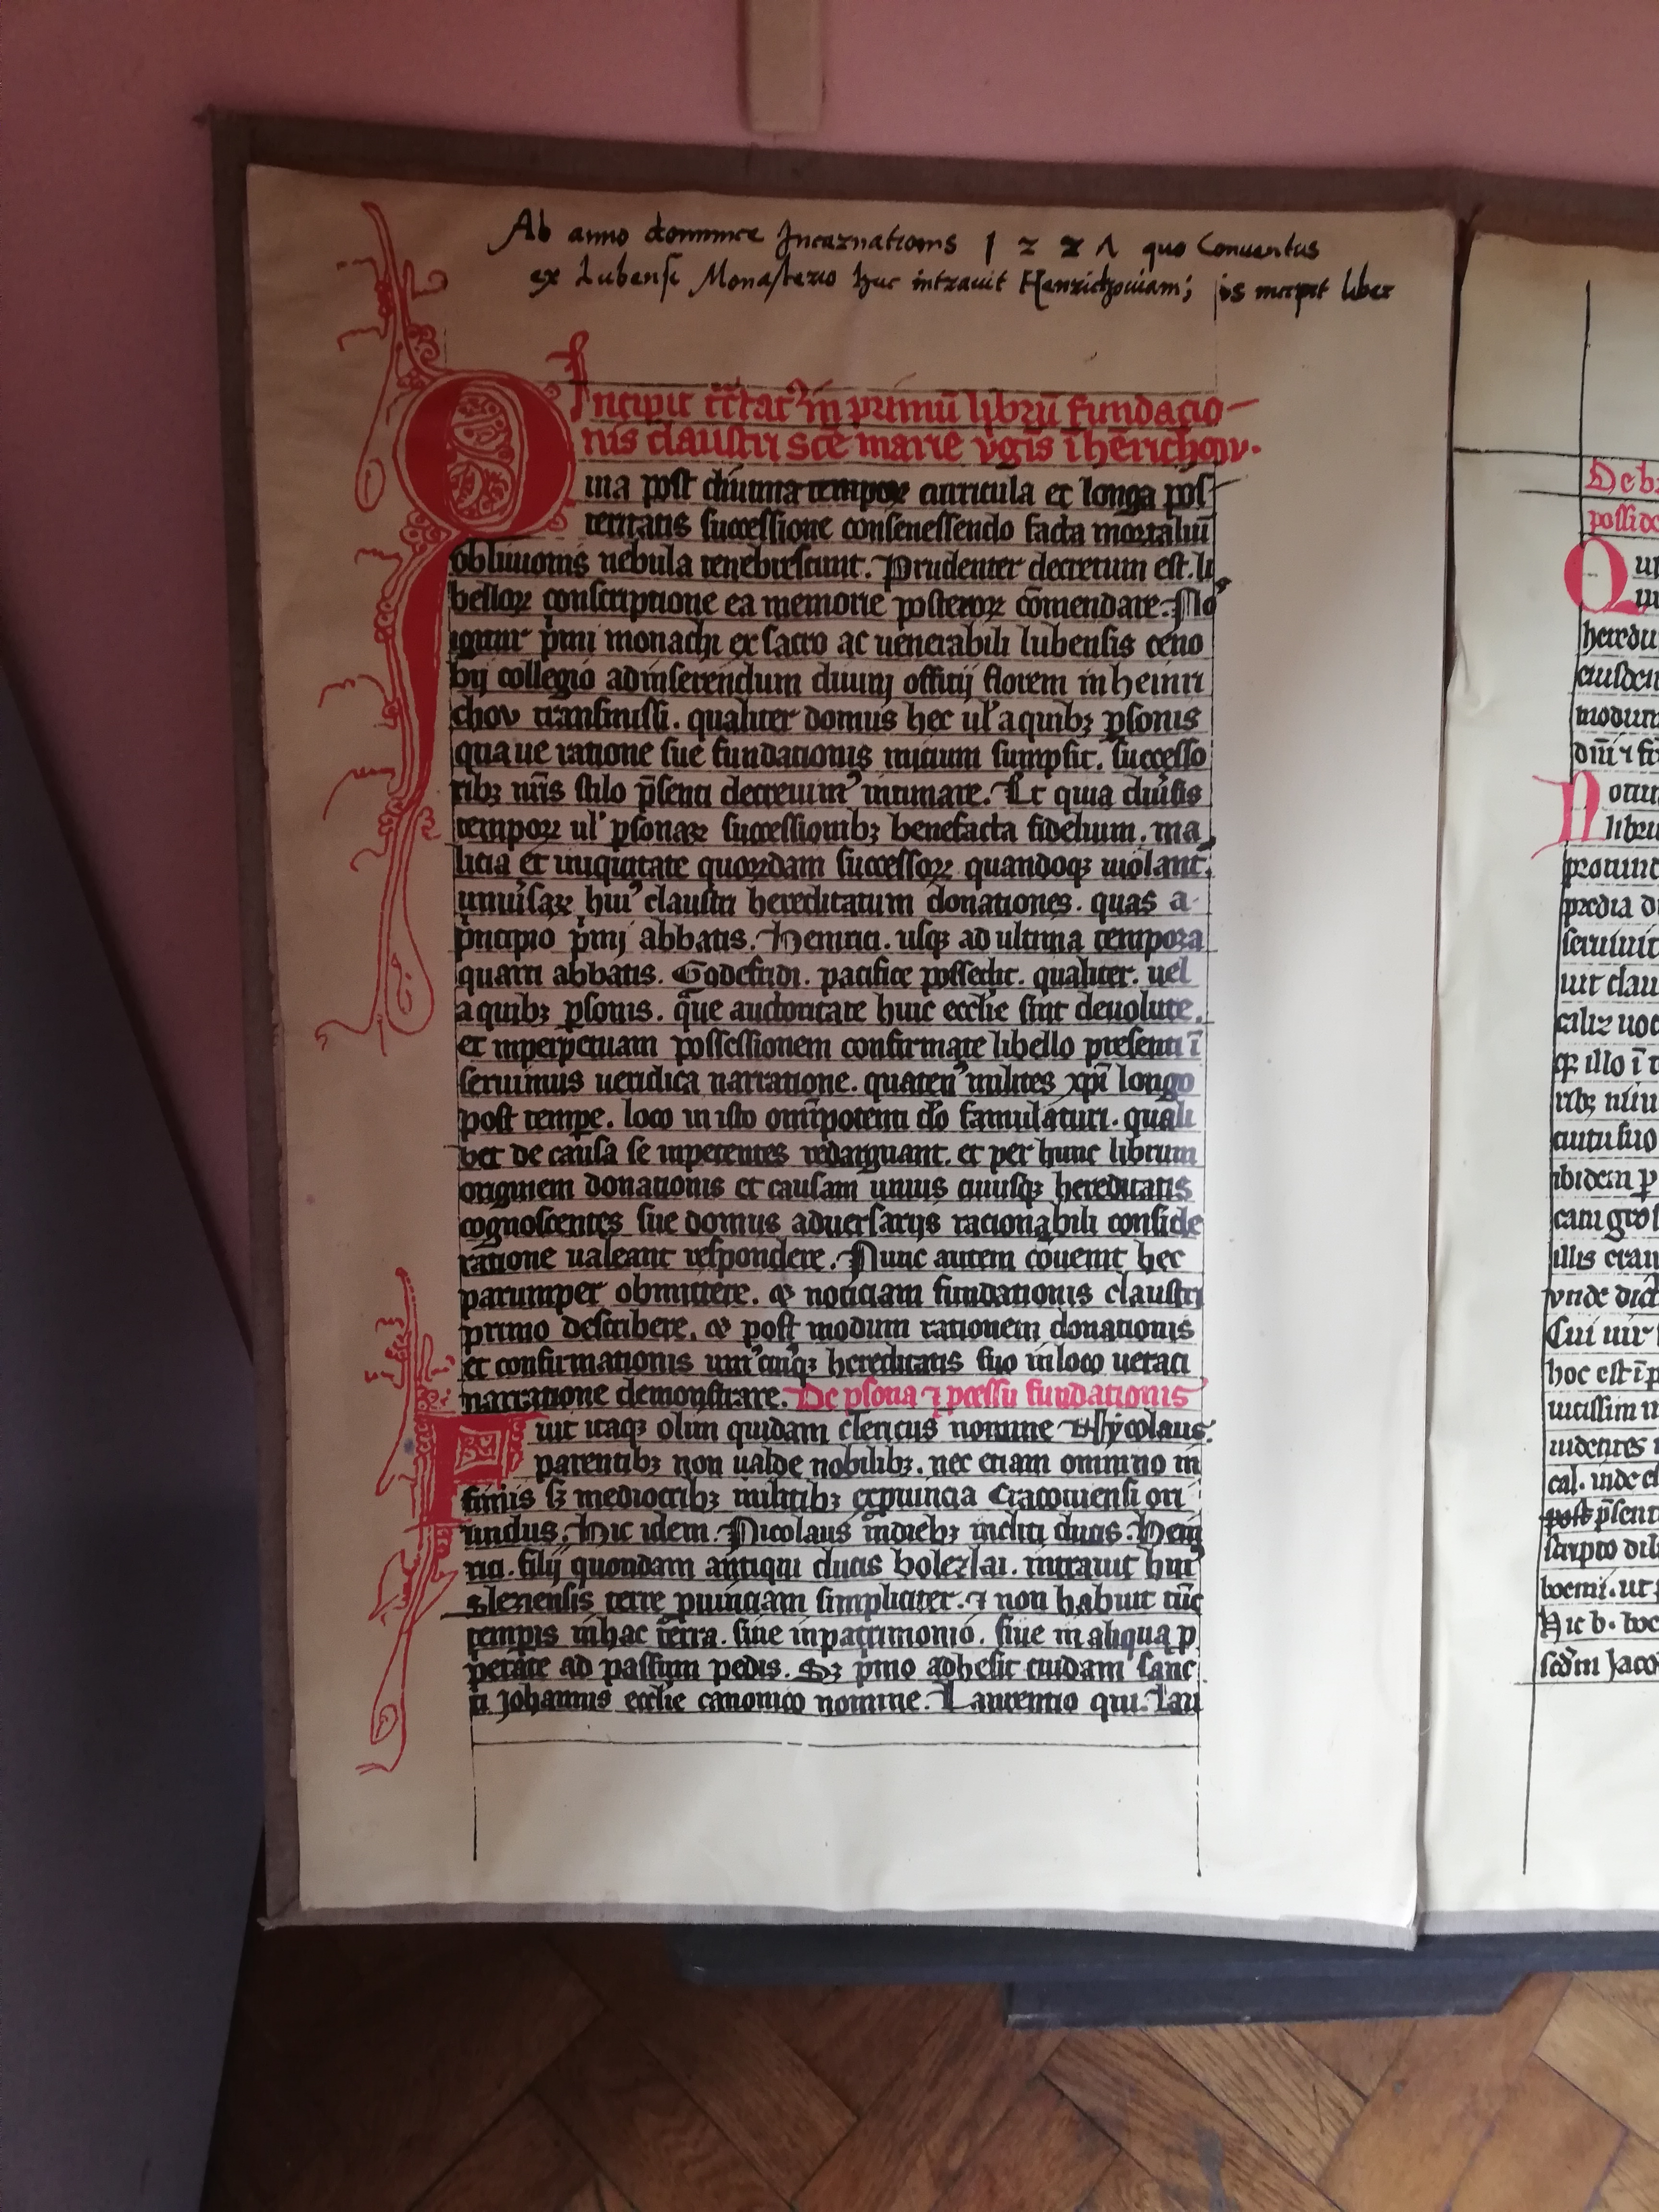 Ab anno dominice Incarnationis 1 2 2 Λ quo Conventus
ex Lubensi Monasterio huc intravit Henrichowiam; is incipit liber
Incipit in primū librū fundacio-
nis claustri sce marie v̄gis ī henrichow.
Quia post diuturna tempora curricula et longa pos-
teritatis successione consenessendo facta mortaliū
obliuionis nebula tenebrescunt. Prudenter decretum est. li
belloꝝ conscriptione ea memorie posteroꝝ cōmendare. Nos
igitur pͥmi monachi ex sacro ac uenerabili lubensis ceno
bij collegio ad inserendum diuinj officij florem in heinri
chov transmissi. qualiter domus hec ul' a quibꝫ ꝑsonis
qua ue ratione sue fundationis inicium sumpsit. successo
ribꝫ nr̄is stilo p̄senti decreuimꝰ intimare. Et quia diuͥsis
tempoꝝ ul' ꝑsonaꝝ successionibꝫ benefacta fidelium. ma
licia et iniquitate quoꝝdam successoꝝ quandoqꝫ uiolant'.
uniuͥsaꝝ huiꝰ claustri hereditatum donationes. quas a
pͥncipio pͥmj abbatis. Heinrici. usqꝫ ad ultima tempora
quarti abbatis. Godefridi. pacifice possedit. qualiter. uel
a quibꝫ ꝑsonis. qͣue auctoritate huic ecclie sint deuolute.
et in perpetuam possessionem confirmate libello presenti ī
seruimus ueridica narratione. quatenꝰ milites xpī longo
post tempe. loco in isto omīpotenti dō famulaturi. quali
bet de causa se inpetentes redarguant. et per hunc librum
originem donationis et causam unius cuiusqꝫ hereditatis
cognoscentes sue domus aduersarijs racionabili conside
ratione ualeant respondere. Nunc autem cōuenit hec
parumper obmittere. & noticiam fundationis claustri
primo describere. & post modum rationem donationis
et confirmationis uniꝰcuiꝰqꝫ hereditatis suo in loco ueraci
narratione demonstrare. De ꝑsona ⁊ ꝓcessu fundationis
Fuit itaqꝫ olim quidam clericus nomine Nycolaus.
parentibꝫ non ualde nobilibꝫ. nec etiam omnino in
fimis sꝫ mediocribꝫ militibꝫ ex ꝓuincia Cracouiensi ori
undus. Hic idem. Nicolaus in diebꝫ incliti ducis. Hein
rici. filij quondam antiqui ducis bolezlai. intrauit huiꝰ
slezensis terre ꝓuinciam simpliciter. ⁊ non habuit tūc
tempͥis in hac terra. siue in patrimonio. siue in aliqua ꝓ
pͥetate ad passum pedis. Sꝫ pͥmo adhesit cuidam sanc
ti Johannis ecclie canonico nomine. Laurentio qui. Lau
De b
posside
Qu
heredu
eiusdem
modum
dnī ⁊
Notum
libru
prouinc
predia d
seruiuit
uit clau
caliz uoc
illo ī t
ribꝫ
autu suo
ibidem p
illis eran
vnde dict
Cui uir
hoc est ī p
uicissim
uidentes
cal. inde
post p̄sent
scripto dil
boemi. ut
Hic b. boe
scd̄m Jaco